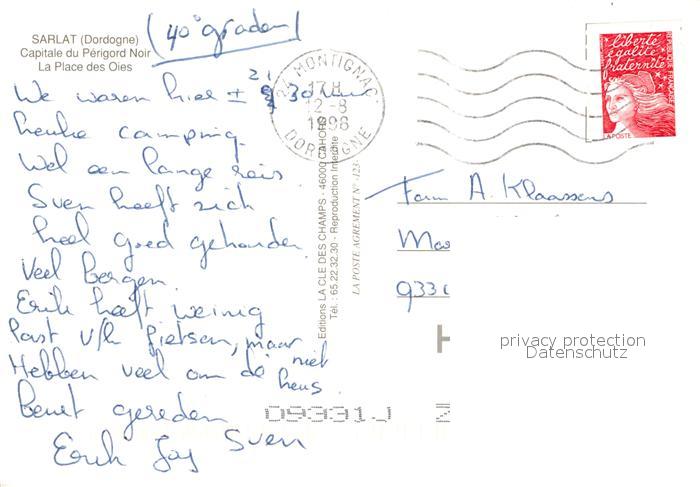 (40° graden)
SARLAT (Dordogne)
Capitale du Périgord Noir
La Place des Oies
We waren hier ± 21 30
leuke camping.
Wel een lange reis.
Sven heeft zich
heel goed gehouden
Veel bergen.
Erik heeft weinig
last v/h fietsen, maar
Hebben veel om de niet
heus
gereden
Erik Joy Sven
24 MONTIGNAC
17H
12-8
1998
DORDOGNE
Editions LA CLE DES CHAMPS - 46000 CAHORS
Tél. : 65.22.32.30 - Reproduction Interdite
LA POSTE AGREMENT N° 123
liberté
égalité
fraternité
RÉPUBLIQUE FRANÇAISE
LA POSTE
Fam A. Klaassens
933
privacy protection
Datenschutz
09331J